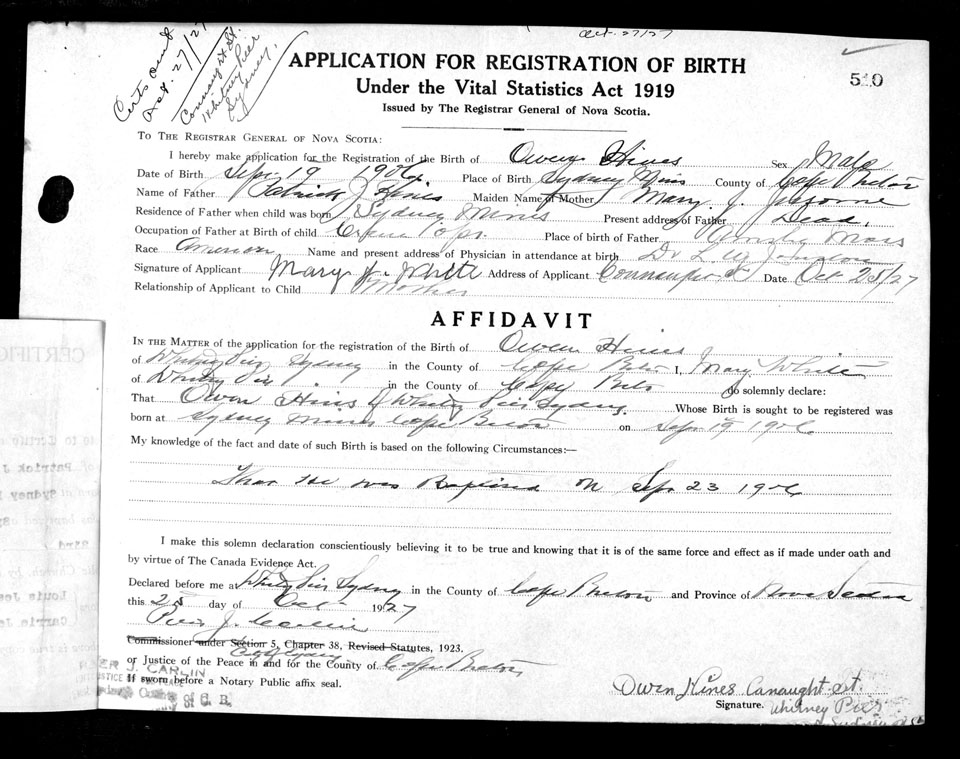 Oct. 27/27
Certs out
Oct. 27/27
Connaught St.
Whitney Pier
Sydney.
APPLICATION FOR REGISTRATION OF BIRTH
510
Under the Vital Statistics Act 1919
Issued by The Registrar General of Nova Scotia.
TO THE REGISTRAR GENERAL OF NOVA SCOTIA:
I hereby make application for the Registration of the Birth of Owen Hines Sex Male
Date of Birth Sep. 19 1906 Place of Birth Sydney Mines County of Cape Breton
Name of Father Patrick J Hines Maiden Name of Mother Mary J.
Residence of Father when child was born Sydney Mines Present address of Father Dead.
Occupation of Father at Birth of child Place of birth of Father Mass
Race American Name and present address of Physician in attendance at birth Dr L W Johnstone
Signature of Applicant Mary J. White Address of Applicant Connaught St Date Oct 25/27
Relationship of Applicant to Child Mother
AFFIDAVIT
IN THE MATTER of the application for the registration of the Birth of Owen Hines
of Whitney Pier Sydney in the County of Cape Breton I, Mary White
of Whitney Pier in the County of Cape Breton do solemnly declare:
That Owen Hines of Whitney Pier Sydney. Whose Birth is sought to be registered was
born at Sydney Mines Cape Breton on Sepr 19 1906
My knowledge of the fact and date of such Birth is based on the following Circumstances:—
That He was Baptised on Sep 23 1906
I make this solemn declaration conscientiously believing it to be true and knowing that it is of the same force and effect as if made under oath and
by virtue of The Canada Evidence Act.
Declared before me at Whitney Pier Sydney in the County of Cape Breton and Province of Nova Scotia
this 25 day of Oct 1927
Peter J. Carlin
Commissioner under Section 5, Chapter 38, Revised Statutes, 1923.
City of Sydney
or Justice of the Peace in and for the County of Cape Breton
If sworn before a Notary Public affix seal.
PETER J. CARLIN
JUSTICE OF
of C. B.
Owen Hines Canaught-st.
Signature. Whitney Pier
Sydney N S